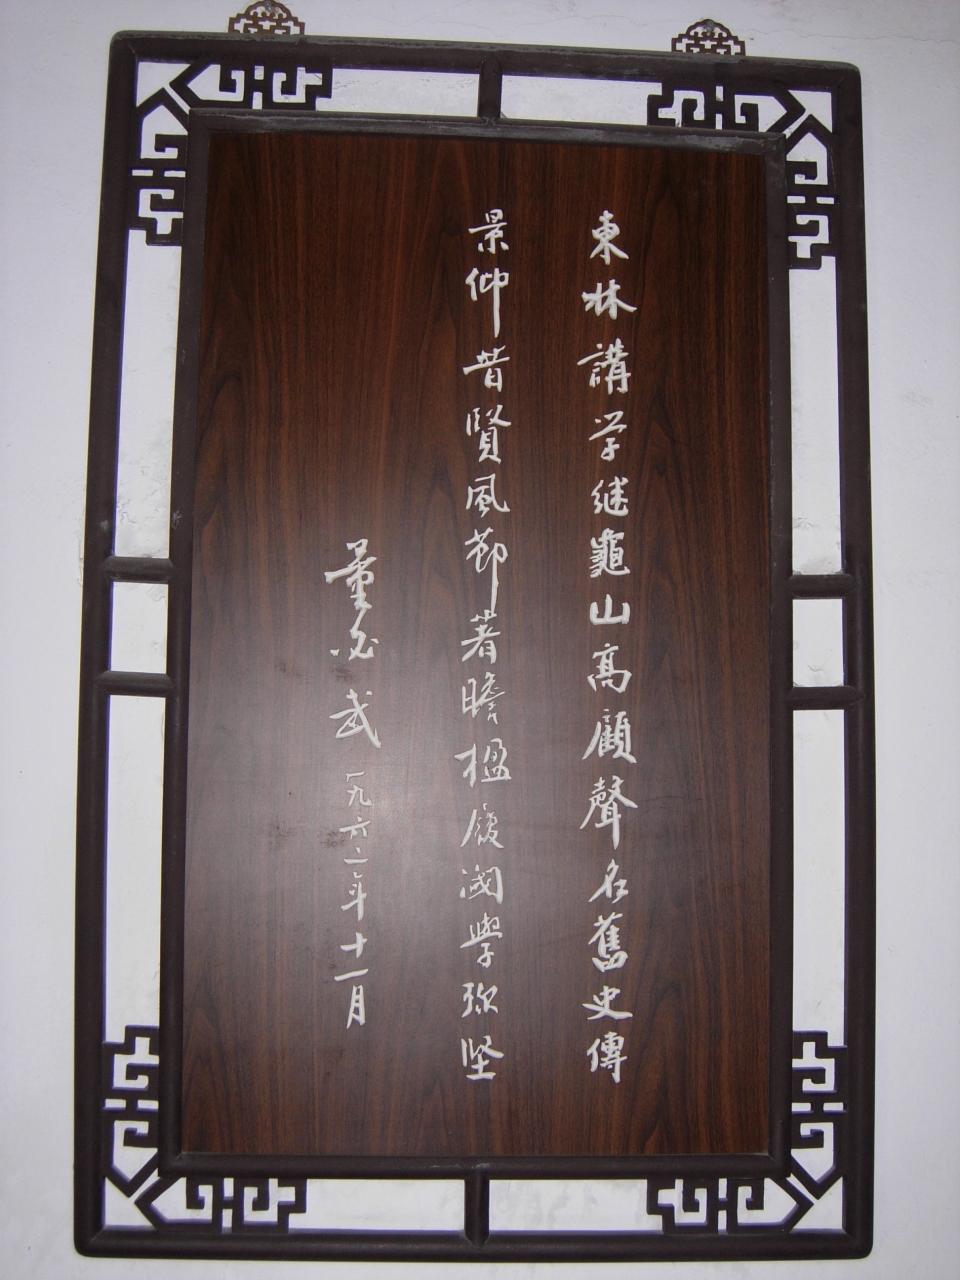 東林講学继龜山高顧聲名舊史傳
景仰昔賢風節著瞻楹履閾學弥坚
董必武 一九六二年十一月